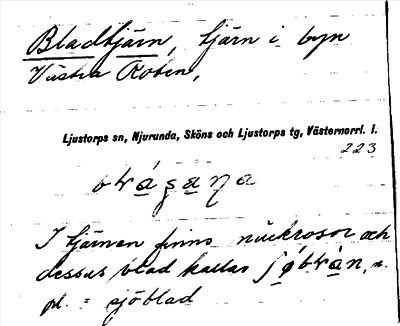 Bladtjärn, tjärn i byn
Västra
Ljustorps sn, Njurunda, Sköns och Ljustorps tg, Västernorrl. l.
223
I tjärnen finns näckrosor och
dessas blad kallas
pl. = sjöblad